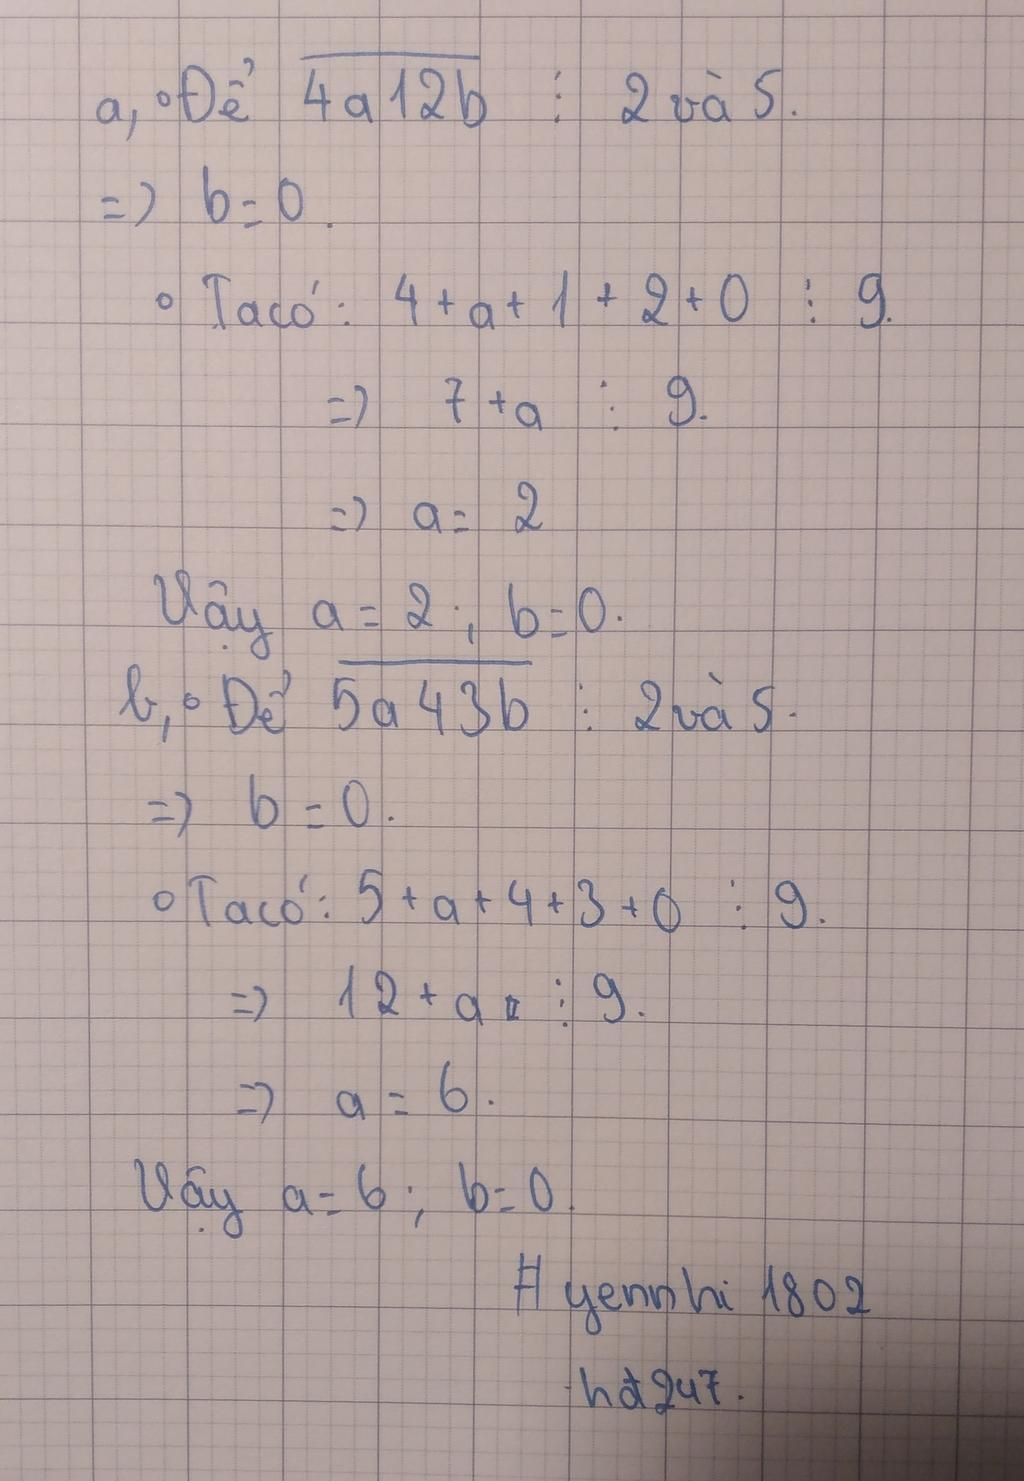 a, • Để 4a12b ⋮ 2 và 5.
=> b=0.
• Ta có: 4+a+1+2+0 ⋮ 9.
=> 7+a ⋮ 9.
=> a= 2
Vậy a=2; b=0.
b, • Để 5a43b ⋮ 2 và 5.
=> b=0.
• Ta có: 5+a+4+3+0 ⋮ 9.
=> 12+a ⋮ 9.
=> a=6.
Vậy a=6; b=0.
# yennhi 1802
hđ247.